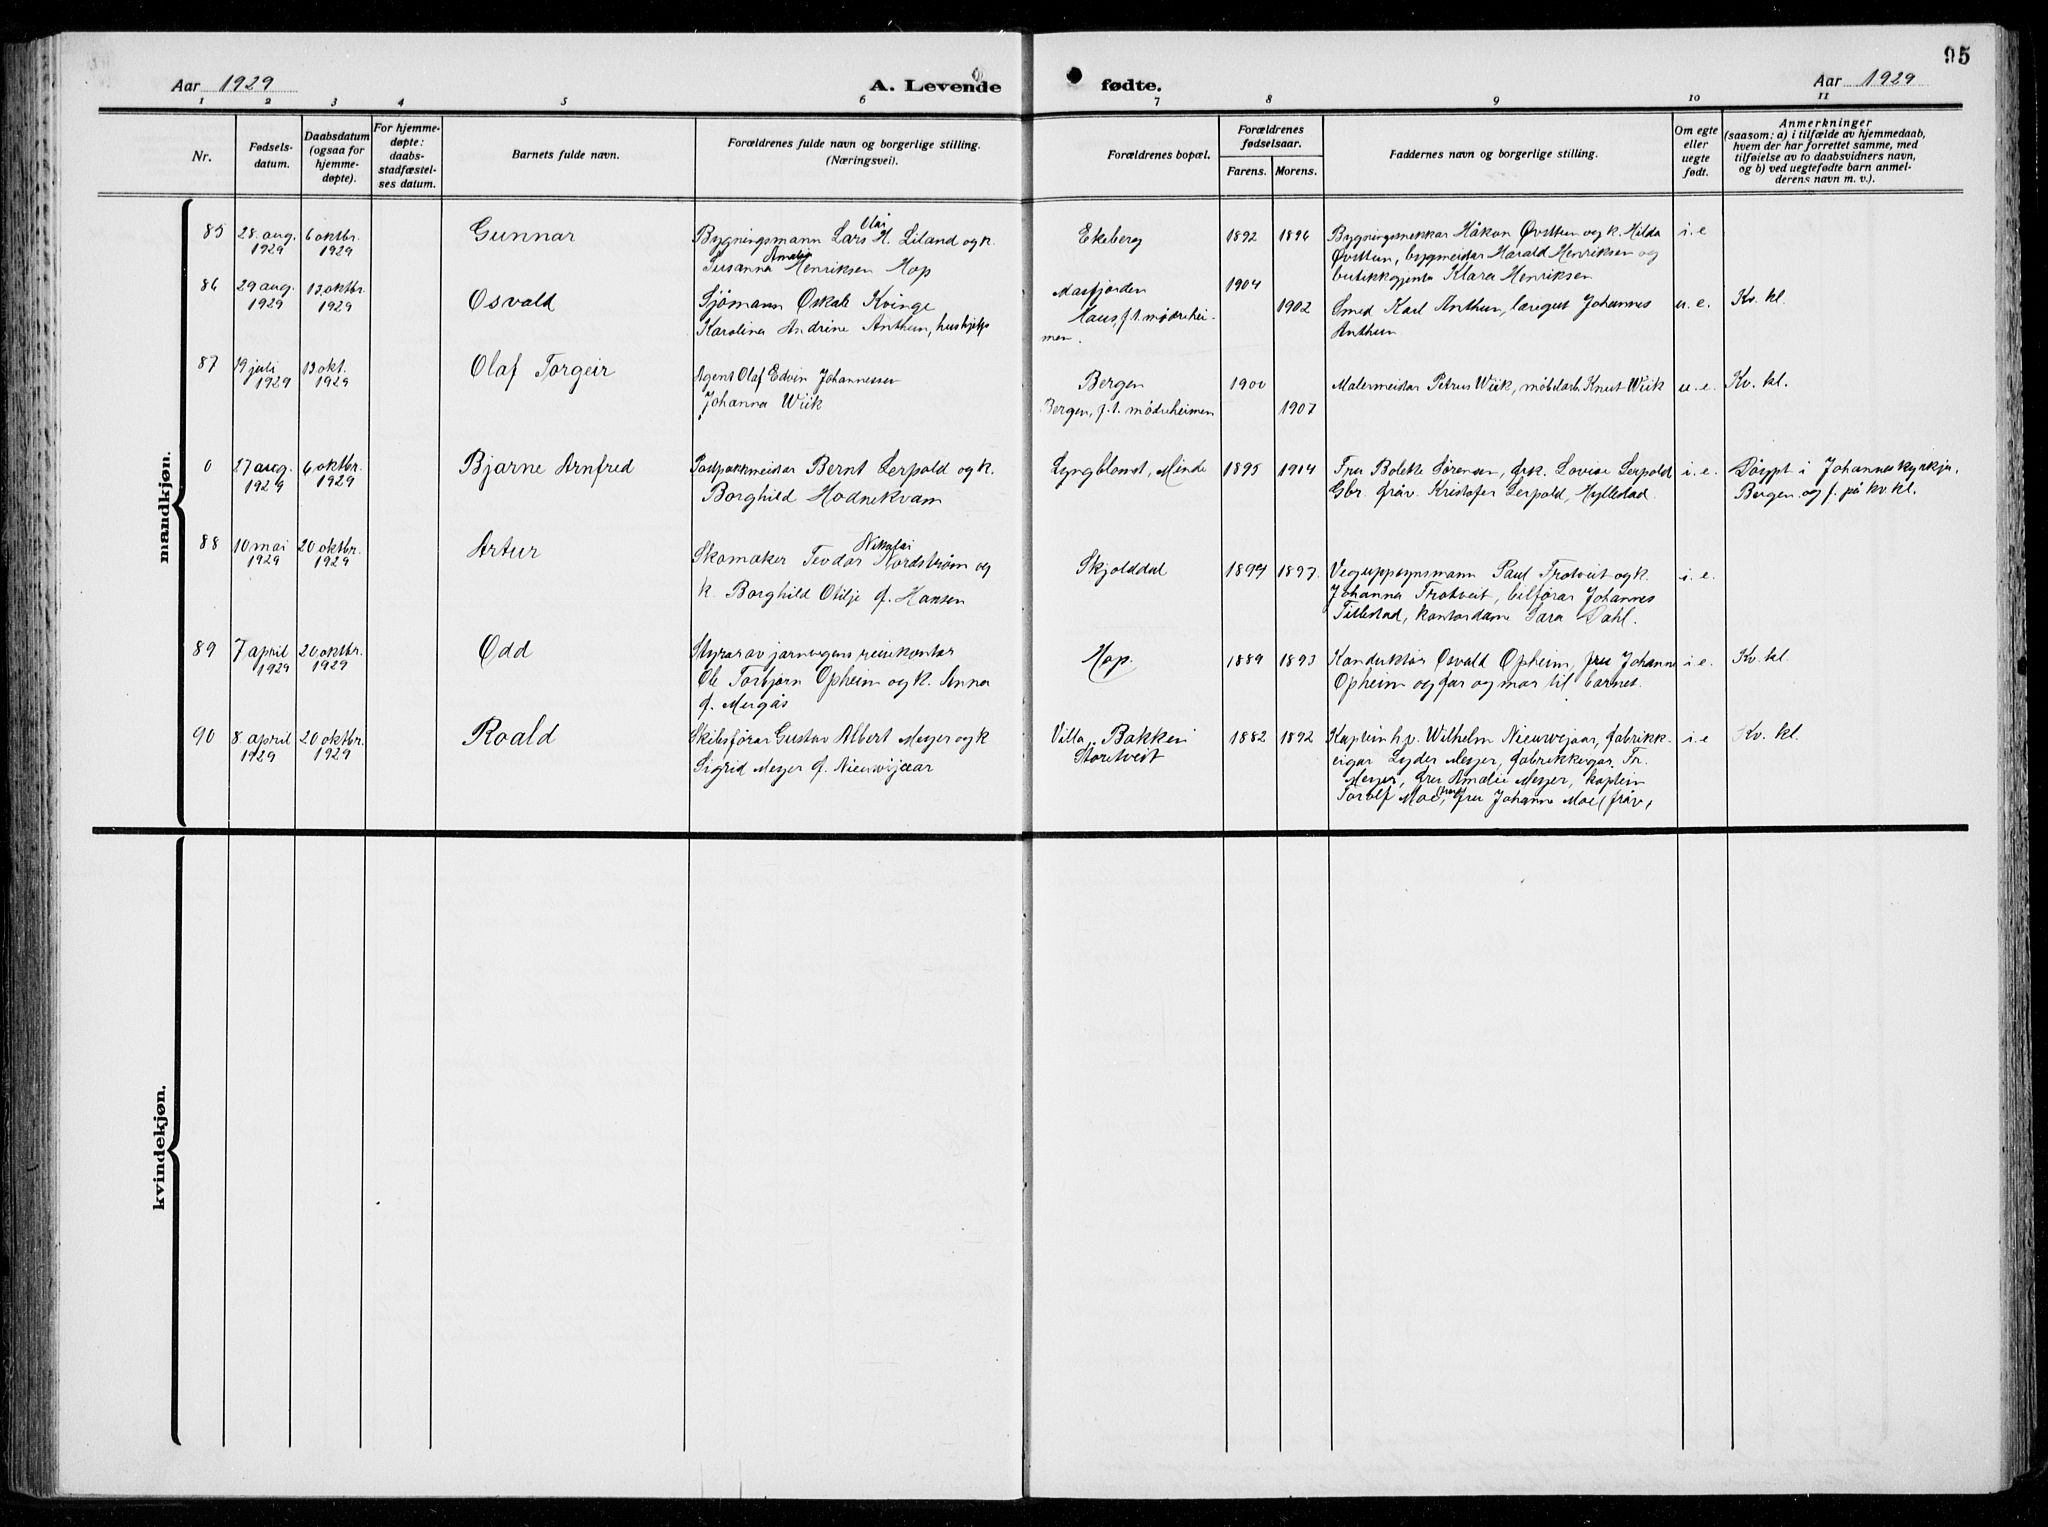 95
Aar 1929 A. Levende fødte. Aar 1929
1 2 3 4 5 6 7 8 9 10 11
Nr.
Fødsels-
datum.
Daabsdatum
(ogsaa for
hjemme-
døpte).
For hjemme-
døpte:
daabs-
stadfæstel-
ses datum.
Barnets fulde navn.
Forældrenes fulde navn og borgerlige stilling.
(Næringsvei).
Forældrenes bopæl.
Forældrenes
fødselsaar.
Farens. Morens.
Faddernes navn og borgerlige stilling.
Om egte
eller
uegte
født.
Anmerkninger
(saasom: a) i tilfælde av hjemmedaab,
hvem der har forrettet samme, med
tilføielse av to daabsvidners navn,
og b) ved uegtefødte barn anmel-
derens navn m. v.).
mandkjøn.
85 28 aug. 1929 6 oktbr. 1929 Gunnar
Bygningsmann Lars H. Liland og k.
Susanna Amalia Henriksen Hop
Ekeberg 1892 1896
Bygningssnekkar Håkon Øvsttun og k. Hilda
Øvsttun, bygmeistar Harald Henriksen og
butikkgjenta Klara Henriksen
i. e
86 29 aug. 1929 13 oktbr. 1929 Osvald
Sjømann Øskale Kvinge
Karolina Andrine Anthun, hushjelp
Masfjorden 1904
Haus, f. t. mødrehei-
men. 1902
Smed Karl Anthun, læregut Johannes
Anthun
u. e. Kv. kl.
87 19 juli 1929 13 okt. 1929 Olaf Torgeir
Agent Olaf Edvin Johannessen
Johanna Wiik
Bergen 1900
Bergen, f. t. mødreheimen 1907
Malermeistar Petrus Wiik, møbelarb. Knut Wiik
u. e. Kv. kl.
0 27 aug. 1929 6 oktbr. 1929 Bjarne Arnfred
Postpakkmeistar Bernt Lerpold og k.
Borghild Hodnekvam
Lyngblomst, Minde 1895 1904
Fru Bolette Sørensen, frk. Lovise Lerpold
Gbr. fråv. Kristofer Lerpold, Hyllestad.
i. e.
Døypt i Johanneskyrkja,
Bergen og f. på kv. kl.
88 10 mai 1929 20 oktbr. 1929 Artur
Skomaker Teodor Nikolai Nordstrøm og
k. Borghild Otilje f. Hansen
Skjolddal 1894 1897.
Veguppsynsmann Paul Trotveit og k.
Johanna Trotveit, bilførar Johannes
Tillestad, kontordame Sara Dahl.
i. e.
89 7 april 1929 20 oktbr. 1929 Odd
Styrar av jarnvegens reisekontor
Ole Torbjørn Opheim og k. Anna
f. Mergås
Hop. 1889 1893
Konduktør Osvald Opheim, fru Johanne
Opheim og far og mor til barnet.
i. e. Kv. kl.
90 8 april 1929 20 oktbr. 1929 Roald
Skibsførar Gustav Albert Meyer og k
Sigrid Meyer f. Nieuwejaar
Villa Bakken
Storetveit 1882 1892
Kaptein h.v. Wilhelm Nieuwejaar, fabrikk-
eigar Lyder Meyer, fabrikkeigar Fr.
Meyer, fru Amalie Meyer, kaptein
Torolf Moe, fru Johanne Moe (fråv.
i. e Kv. kl.
kvindekjøn.